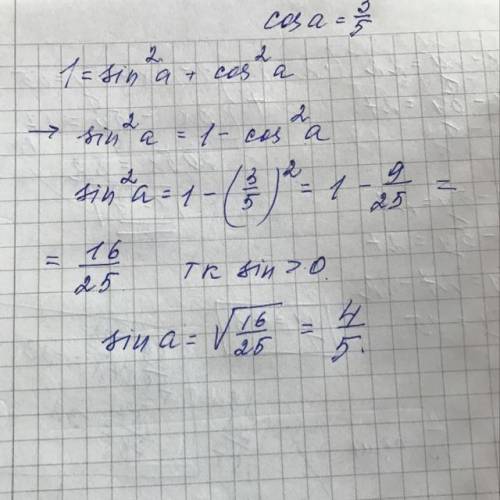 cos a = 3/5
1 = sin²a + cos²a
→ sin²a = 1 - cos²a
sin²a = 1 - (3/5)² = 1 - 9/25 =
= 16/25 тк sin > 0.
sin a = √16/25 = 4/5.